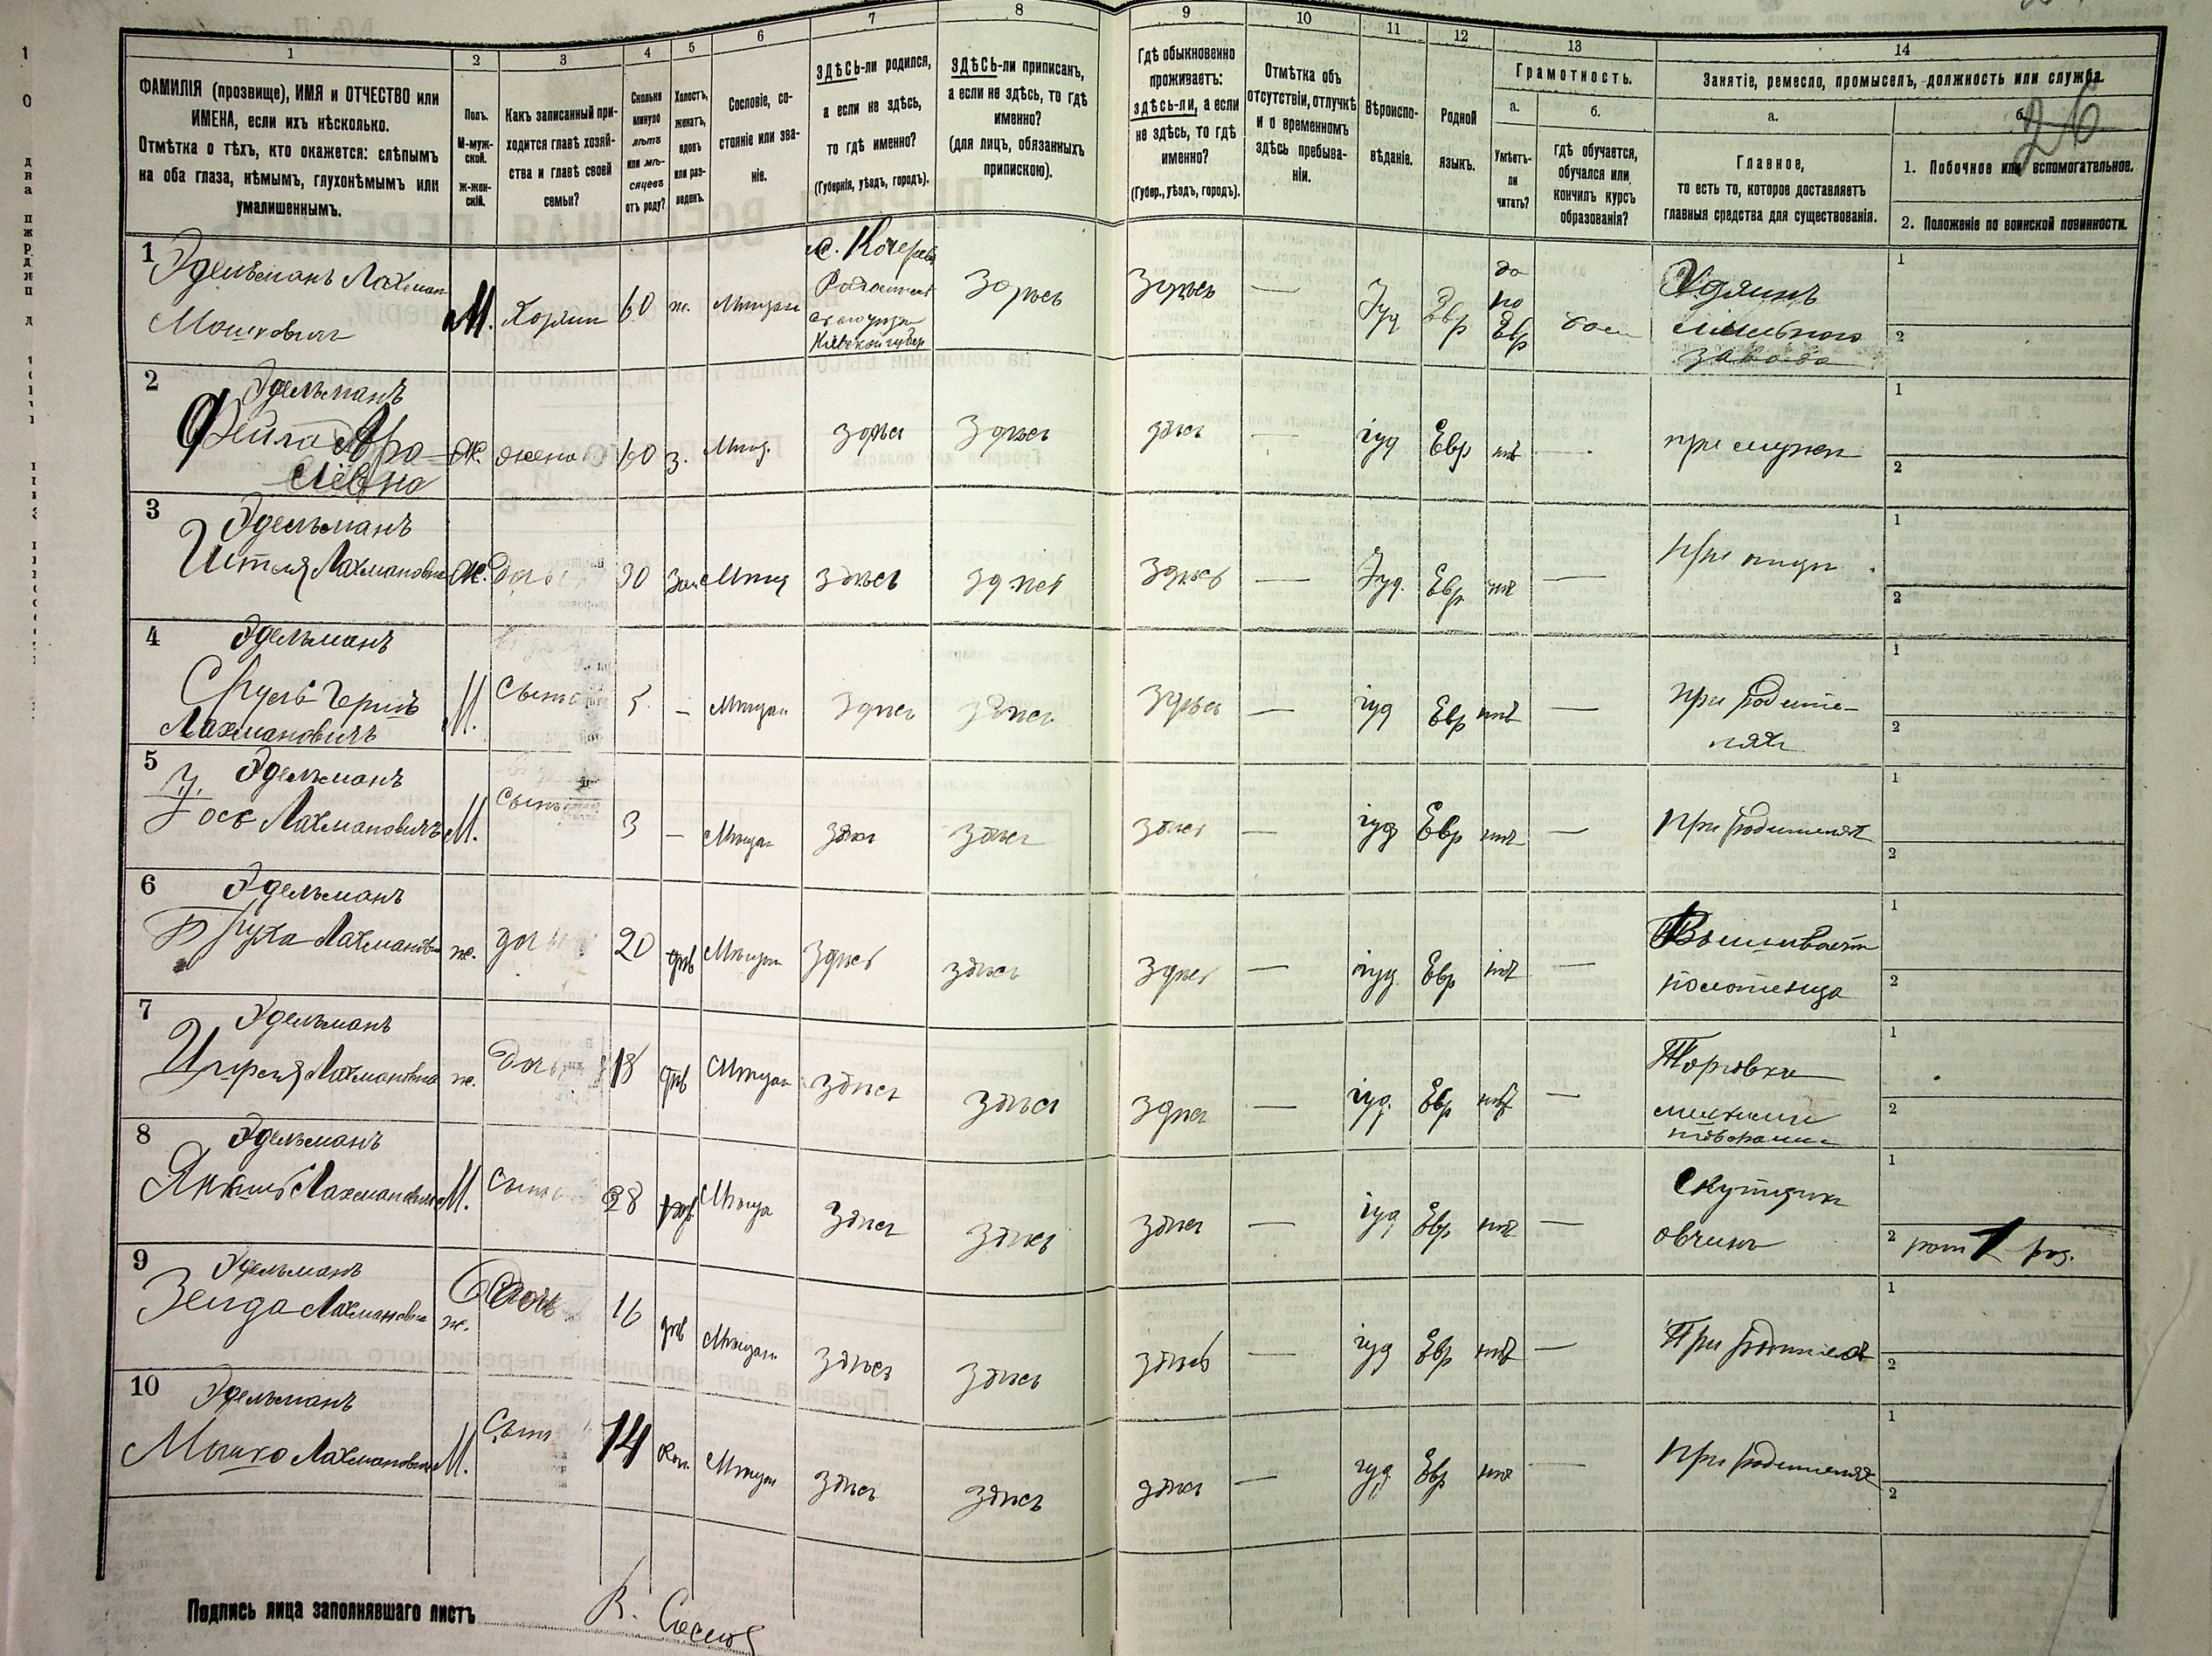 1 2 3 4 5 6 7 8 9 10 11 12 13 14
ФАМИЛІЯ (прозвище), ИМЯ и ОТЧЕСТВО или
ИМЕНА, если ихъ нѣсколько.
Отмѣтка о тѣхъ, кто окажется: слѣпымъ
на оба глаза, нѣмымъ, глухонѣмымъ или
умалишеннымъ.
Полъ.
М-муж-
ской.
ж-жен-
скій.
Какъ записанный при-
ходится главѣ хозяй-
ства и главѣ своей
семьи?
Сколько
минуло
лѣтъ
или мѣ-
сяцевъ
отъ роду?
Холостъ,
женатъ,
вдовъ
или раз-
веденъ.
Сословіе, со-
стояніе или зва-
ніе.
ЗДѢСЬ-ли родился,
а если не здѣсь,
то гдѣ именно?
(Губернія, уѣздъ, городъ).
ЗДѢСЬ-ли приписанъ,
а если не здѣсь, то гдѣ
именно?
(для лицъ, обязанныхъ
припискою).
Гдѣ обыкновенно
проживаетъ:
здѣсь-ли, а если
не здѣсь, то гдѣ
именно?
(Губер., уѣздъ, городъ).
Отмѣтка объ
отсутствіи, отлучкѣ
и о временномъ
здѣсь пребыва-
ніи.
Вѣроиспо-
вѣданіе.
Родной
языкъ.
Грамотность.
а.
Умѣетъ-
ли
читать?
б.
гдѣ обучается,
обучался или
кончилъ курсъ
образованія?
Занятіе, ремесло, промыселъ, должность или служба.
а.
Главное,
то есть то, которое доставляетъ
главныя средства для существованія.
б.
26
1. Побочное или вспомогательное.
2. Положеніе по воинской повинности.
1
Эдельманъ Лахман
Мошковичъ
М. Хозяин 60 ж. Мѣщан
Кіевской губер
здѣсь здѣсь — Іуд Евр
да
по
Евр
завода
1
2
2
Эдельманъ
Фейга
Ж. жена 60 з. Мѣщ. здѣсь здѣсь здѣсь — іуд Евр нѣт — при муже
1
2
3
Эдельманъ
Лахмановна Ж. дочь 30 Мѣщ здѣсь здѣсь здѣсь — Іуд. Евр нѣт —
1
2
4
Эдельманъ
Сруль Герш
Лахмановичъ М. Сынъ 5 — Мѣщан здѣсь здѣсь здѣсь — іуд Евр нѣт — при родите-
ляхъ
1
2
5
Эдельманъ
Лахмановичъ М. Сынъ 3 — Мѣщан здѣсь здѣсь здѣсь — іуд Евр нѣт — при родителях
1
2
6
Эдельманъ
Бруха Лахмановна ж. дочь 20 дѣв Мѣщан здѣсь здѣсь здѣсь — іуд Евр нѣт — Вышивает
полотенца
1
2
7
Эдельманъ
Лахмановна ж. дочь 18 дѣв Мѣщан здѣсь здѣсь здѣсь — іуд. Евр нѣт — Торговка
мелкими
товарами
1
2
8
Эдельманъ
Янкель Лахмановичъ М. сынъ 28 Мѣщан здѣсь здѣсь здѣсь — іуд Евр нѣт —
овчинъ
1
2 рат 1 раз.
9
Эдельманъ
Зелда Лахмановна ж. дочь 16 дѣв Мѣщан здѣсь здѣсь здѣсь — іуд Евр нѣт — При родителях
1
2
10
Эдельманъ
Мошко Лахмановичъ М. Сынъ 14 хол. Мѣщан здѣсь здѣсь здѣсь — іуд Евр нѣт — при родителях
1
2
Подпись лица заполнявшаго листъ